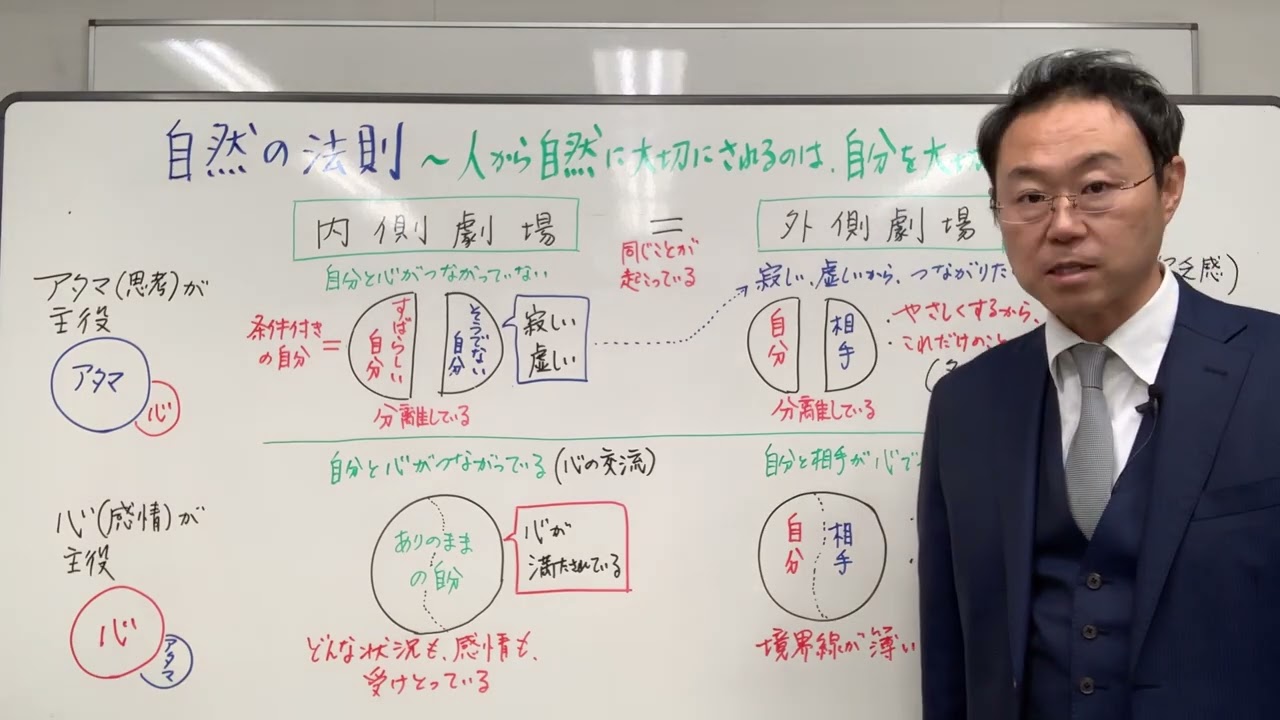 自然の法則 ～人から自然に大切にされるのは、自分を大切
内側劇場
＝
外側劇場
同じことが
起こっている
アタマ(思考)が
主役
アタマ
心
自分と心がつながっていない
条件付き
の自分
＝
すばらしい
自分
そうでない
自分
寂しい
虚しい
分離している
寂しい、虚しいから、つながりた
乏感)
自分
相手
・やさしくするから、
これだけのこと
分離している
心(感情)が
主役
心
アタマ
自分と心がつながっている(心の交流)
ありのまま
の自分
心が
満たされている
どんな状況も、感情も、
受けとっている
自分と相手が心で
自分
相手
境界線が薄い